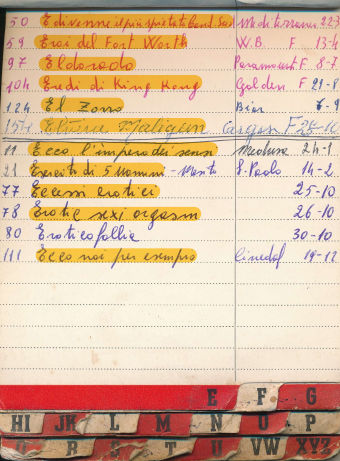 50 E divenne il più spietato band. Sud Mediterranea 22-3
59 Eroi del Fort Worth W.B. F 13-4
97 Eldorado Paramount F. 8-7
104 Eredi di King Kong Golden F 21-8
124 El Zorro Bear 7-9
154 Elvira Madigan F 25-10
11 Ecco l'impero dei sensi Medusa 24-1
21 Esercito di 5 Uomini - S. Paolo 14-2
77 Eccessi erotici 25-10
78 Erotic sexi orgasm 26-10
80 Erotico follia 30-10
111 Ecco noi per esempio Cinedaf 19-12
E F G
HI JK L M N O P
R S T U VW XYZ